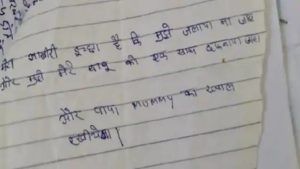 मेरी आखीरी इच्छा है कि मुझे जलाया ना जाए
और मुझे मेरे बाबू को एक साथ दफनाया जाए
और पापा mummy का ख्याल
रखीयेगा।